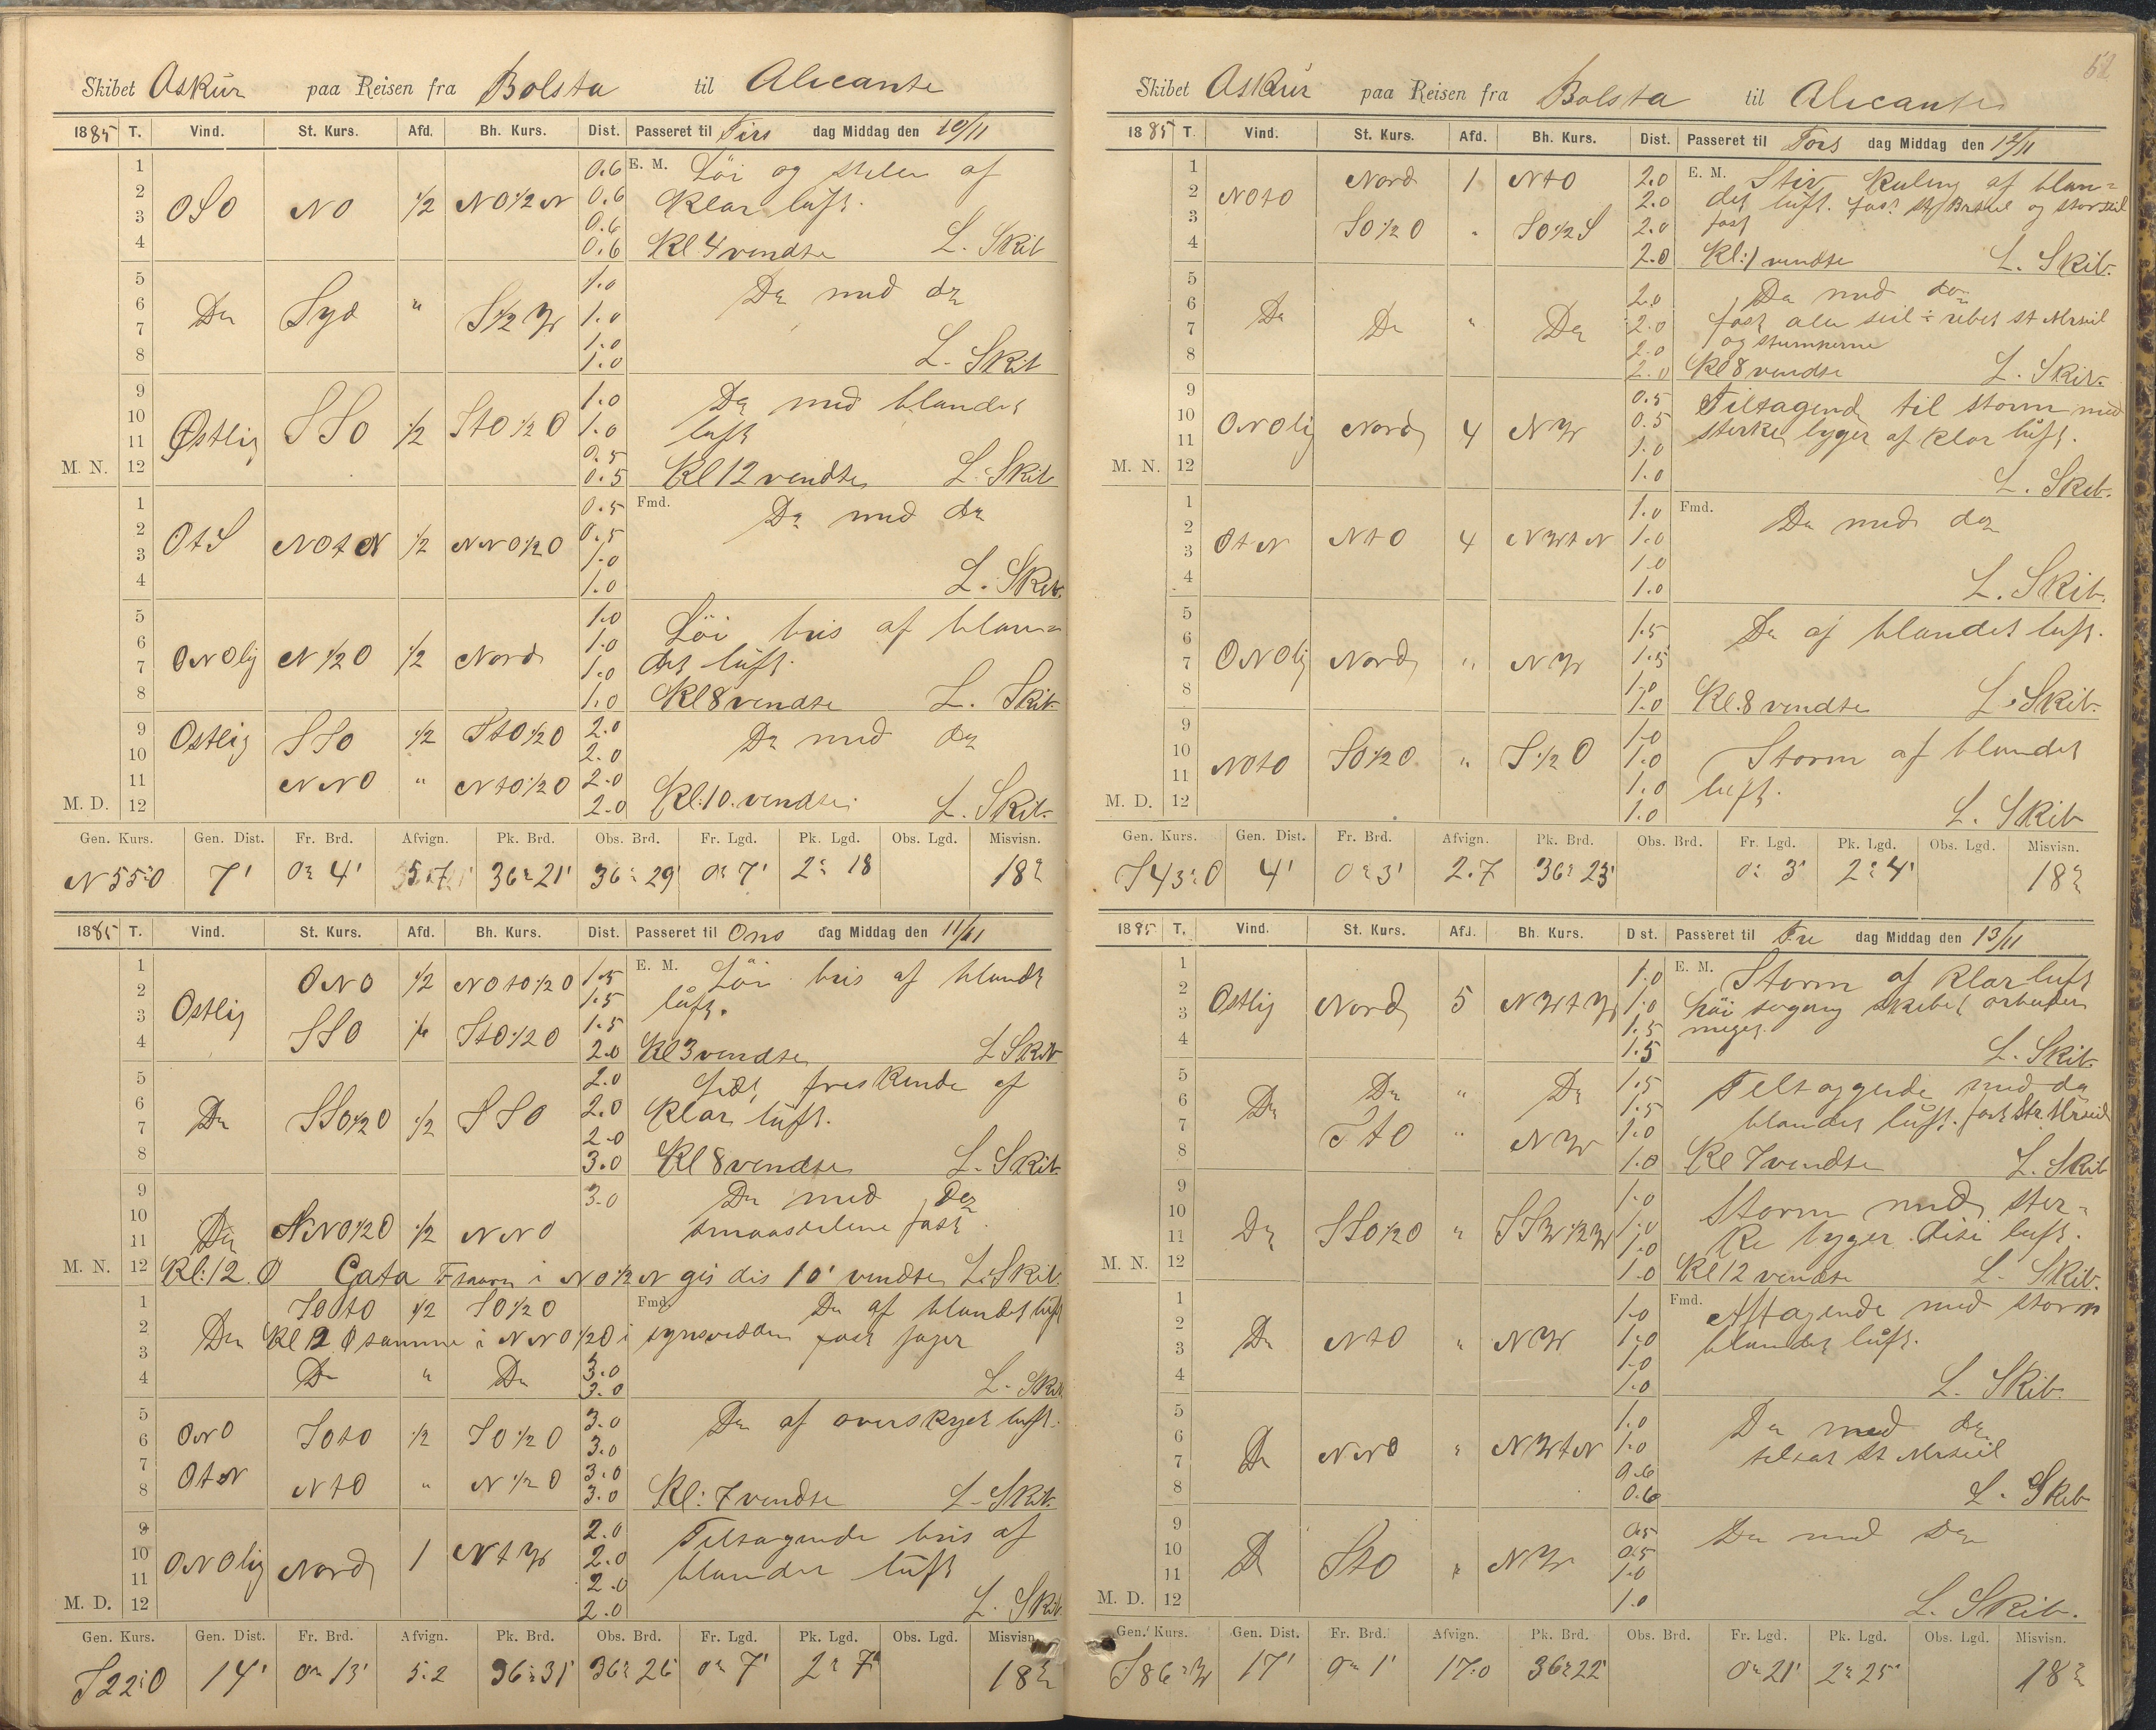 Skibet Askur paa Reisen fra Bolsta til Alicante
1885 T. Vind. St. Kurs. Afd. Bh. Kurs. Dist. Passeret til Tirs dag Middag den 10/11
1 0.6 E. M. Löi og stille af
2 OSO NO 1/2 NO 1/2 N 0.6 Klar luft.
3 0.6
4 0.6 Kl 4 vendte L. Skib
5 1.0 Do med do
6 Do Syd " S 1/2 W 1.0
7 1.0
8 1.0 L. Skib
9 1.0 Do med blandet
10 Østlig SSO 1/2 StO 1/2 O 1.0 luft
11 0.5
M. N. 12 0.5 Kl 12 vendte L. Skib
1 0.5 Fmd. Do med do
2 OtS NOtN 1/2 NNO 1/2 O 0.5
3 1.0
4 1.0 L. Skib.
5 1.0 Löi bris af blan=
6 ONOlig N 1/2 O 1/2 Nord 1.0
7 1.0 det luft.
8 1.0 Kl 8 vendte L. Skib
9 Ostlig SSO 1/2 StO 1/2 O 2.0 Do med do
10 2.0
11 NNO " NtO 1/2 O 2.0
M. D. 12 2.0 Kl: 10. vendte. L. Skib.
Gen. Kurs. Gen. Dist. Fr. Brd. Afvign. Pk. Brd. Obs. Brd. Fr. Lgd. Pk. Lgd. Obs. Lgd. Misvisn.
N 55° O 7' 0° 4' 5.7 36° 21' 36° 29' 0° 7' 2° 18 18°
1885 T. Vind. St. Kurs. Afd. Bh. Kurs. Dist. Passeret til Ons dag Middag den 11/11
1 ONO 1/2 NOtO 1/2 O 1.5 E. M. Löi bris af blandt
2 Ostlig 1.5 luft.
3 SSO 1/2 StO 1/2 O 1.5
4 2.0 Kl 3 vendte L Skib
5 2.0 friskende af
6 Do SSO 1/2 O 1/2 SSO 2.0 Klar luft.
7 2.0
8 3.0 Kl 8 vendte L. Skib
9 3.0 Do med Do
10 Do NNO 1/2 O 1/2 NNO smaaseilene fast.
11
M. N. 12 Kl: 12. O Gata Ftaarn i NO 1/2 N gis dis 10' vendte L. Skib.
1 SOtO 1/2 SO 1/2 O Fmd. Do af blandet luft
2 Do Kl 2 O samme i NNO 1/2 O i synsvidden fast jager
3 Do " Do 3.0
4 3.0 L. Skib
5 ONO SOtO 1/2 SO 1/2 O 3.0 Do af overskyet luft.
6 3.0
7 OtN NtO " N 1/2 O 3.0
8 3.0 Kl: 7 vendte L. Skib
9 2.0 Tiltagende bris af
10 ONOlig Nord 1 NtW 2.0 blandet luft
11 2.0
M. D. 12 2.0 L. Skib
Gen. Kurs. Gen. Dist. Fr. Brd. Afvign. Pk. Brd. Obs. Brd. Fr. Lgd. Pk. Lgd. Obs. Lgd. Misvisn.
S 22° O 14' 0° 13' 5.2 36° 31' 36° 26' 0° 7' 2° 7' 18°
Skibet Askur paa Reisen fra Bolsta til Alicante
1885 T. Vind. St. Kurs. Afd. Bh. Kurs. Dist. Passeret til Tors dag Middag den 12/11
1 Nord 1 NtO 2.0 E. M. Stiv Kuling af blan=
2 NOtO 2.0 det luft. fast og storseil
3 SO 1/2 O " SO 1/2 S 2.0 fast
4 2.0 Kl: 1 vendte L. Skib.
5 2.0 Do med do
6 Do Do " Do 2.0 fast ale seil ÷ rebet st Mrseil
7 2.0 og stumperne
8 2.0 Kl 8 vendte L. Skib.
9 0.5 Tiltagende til storm med
10 ONOlig Nord 4 NW 0.5 sterke byger af klar luft.
11 1.0
M. N. 12 1.0 L. Skib.
1 1.0 Fmd. Do med do
2 OtN NtO 4 NWtN 1.0
3 1.0
4 1.0 L. Skib.
5 1.5 Do af blandet luft.
6 ONOlig Nord " NW 1.5
7 1.0
8 1.0 Kl. 8 vendte L. Skib.
9 1.0
10 NOtO SO 1/2 O " S 1/2 O 1.0 Storm af blandet
11 1.0 luft.
M. D. 12 1.0 L. Skib
Gen. Kurs. Gen. Dist. Fr. Brd. Afvign. Pk. Brd. Obs. Brd. Fr. Lgd. Pk. Lgd. Obs. Lgd. Misvisn.
S 43° O 4' 0° 3' 2.7 36° 23' 0° 3' 2° 4' 18°
1885 T. Vind. St. Kurs. Afd. Bh. Kurs. Dist. Passeret til Fre dag Middag den 13/11
1 1.0 E. M. Storm af klar luft
2 Ostlig Nord 5 NWtW 1.0 höi sögang skibet arbeider
3 1.5 meget.
4 1.5 L. Skib.
5 Do " Do 1.5 Tiltagende med do
6 Do 1.5 blandet luft. fast Str. Mrseil
7 StO " NW 1.0
8 1.0 Kl 7 vendte L. Skib
9 1.0 Storm med ster=
10 Do SSO 1/2 O " SSW 1/2 W 1.0 ke byger. disi luft.
11 1.0
M. N. 12 1.0 Kl 12 vendte L. Skib.
1 1.0 Fmd. Aftagende med storm
2 Do NtO " NW 1.0 blandet luft.
3 1.0
4 1.0 L. Skib.
5 1.0 Do med do
6 Do NNO " NWtN 1.0 tilsat st Mrseil
7 0.6
8 0.6 L. Skib
9 0.5 Do med Do
10 Do StO " NW 0.5
11 1.0
M. D. 12 1.0 L. Skib.
Gen. Kurs. Gen. Dist. Fr. Brd. Afvign. Pk. Brd. Obs. Brd. Fr. Lgd. Pk. Lgd. Obs. Lgd. Misvisn.
S 86° W 17' 0° 1' 17.0 36° 22' 0° 21' 2° 25' 18°